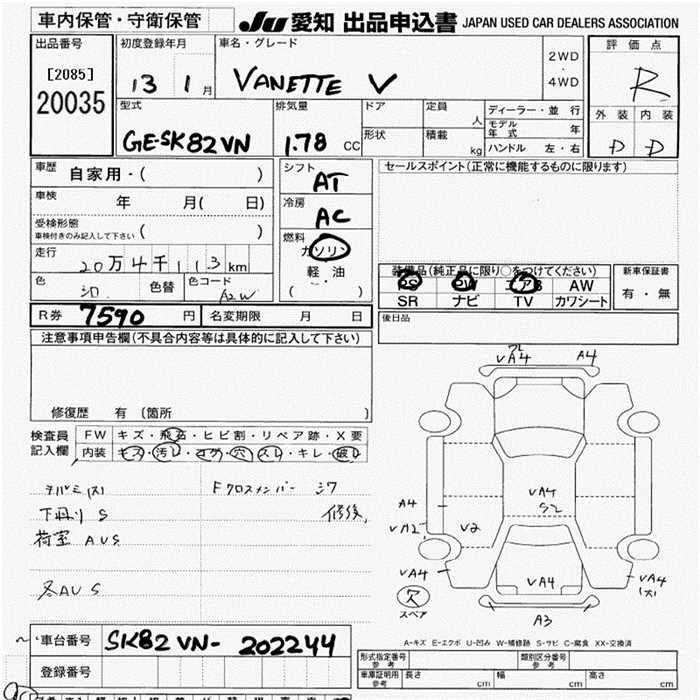 車内保管・守衛保管
JU 愛知 出品申込書 JAPAN USED CAR DEALERS ASSOCIATION
出品番号
[2085]
20035
初度登録年月
13 1月
車名・グレード
VANETTE V
2WD
・
4WD
評価点
R
外装 内装
D D
型式
GE-SK82VN
排気量
1.78 CC
ドア
形状
定員 人
積載 kg
ディーラー・並行
モデル年式 年
ハンドル 左・右
車歴
自家用・( )
車検
年 月( 日)
受検形態
車検付きのみ記入して下さい ( )
走行
20万4千113km
色
シロ
色替
色コード
A2W
シフト
AT
冷房
AC
燃料
ガソリン
・
軽油
( ・ )
セールスポイント(正常に機能するものに限ります)
装備品(純正品に限り○をつけてください)
PS PW エアB AW
SR ナビ TV カワシート
新車保証書
有・無
R券 7590 円
名変期限 月 日
後日品
注意事項申告欄(不具合内容等は具体的に記入して下さい)
修復歴 有 〔箇所 〕
検査員
記入欄
FW キズ・飛石・ヒビ割・リペア跡・X要
内装 キズ・汚レ・コゲ・穴・スレ・キレ・破レ
Fクロスメンバー
修後
下回り S
荷室 AUS
各AUS
VA4
A4
A4
VA4
S2
V2
VA4
VA4
VA4
(大)
A3
欠
スペア
A-キズ E-エクボ U-凹み W-補修跡 S-サビ C-腐食 XX-交換済
車台番号 SK82VN-202244
登録番号
形式指定番号
参考
類別区分番号
参考
車庫証明用
参考
長さ cm
幅 cm
高さ cm